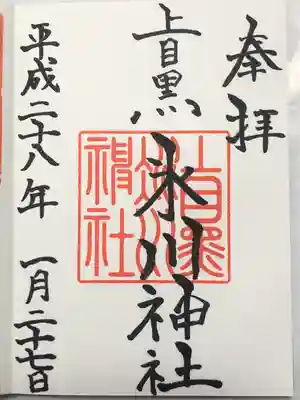 奉拝
上目黒
氷川神社
平成二十八年 一月二十七日
上目黒
神社